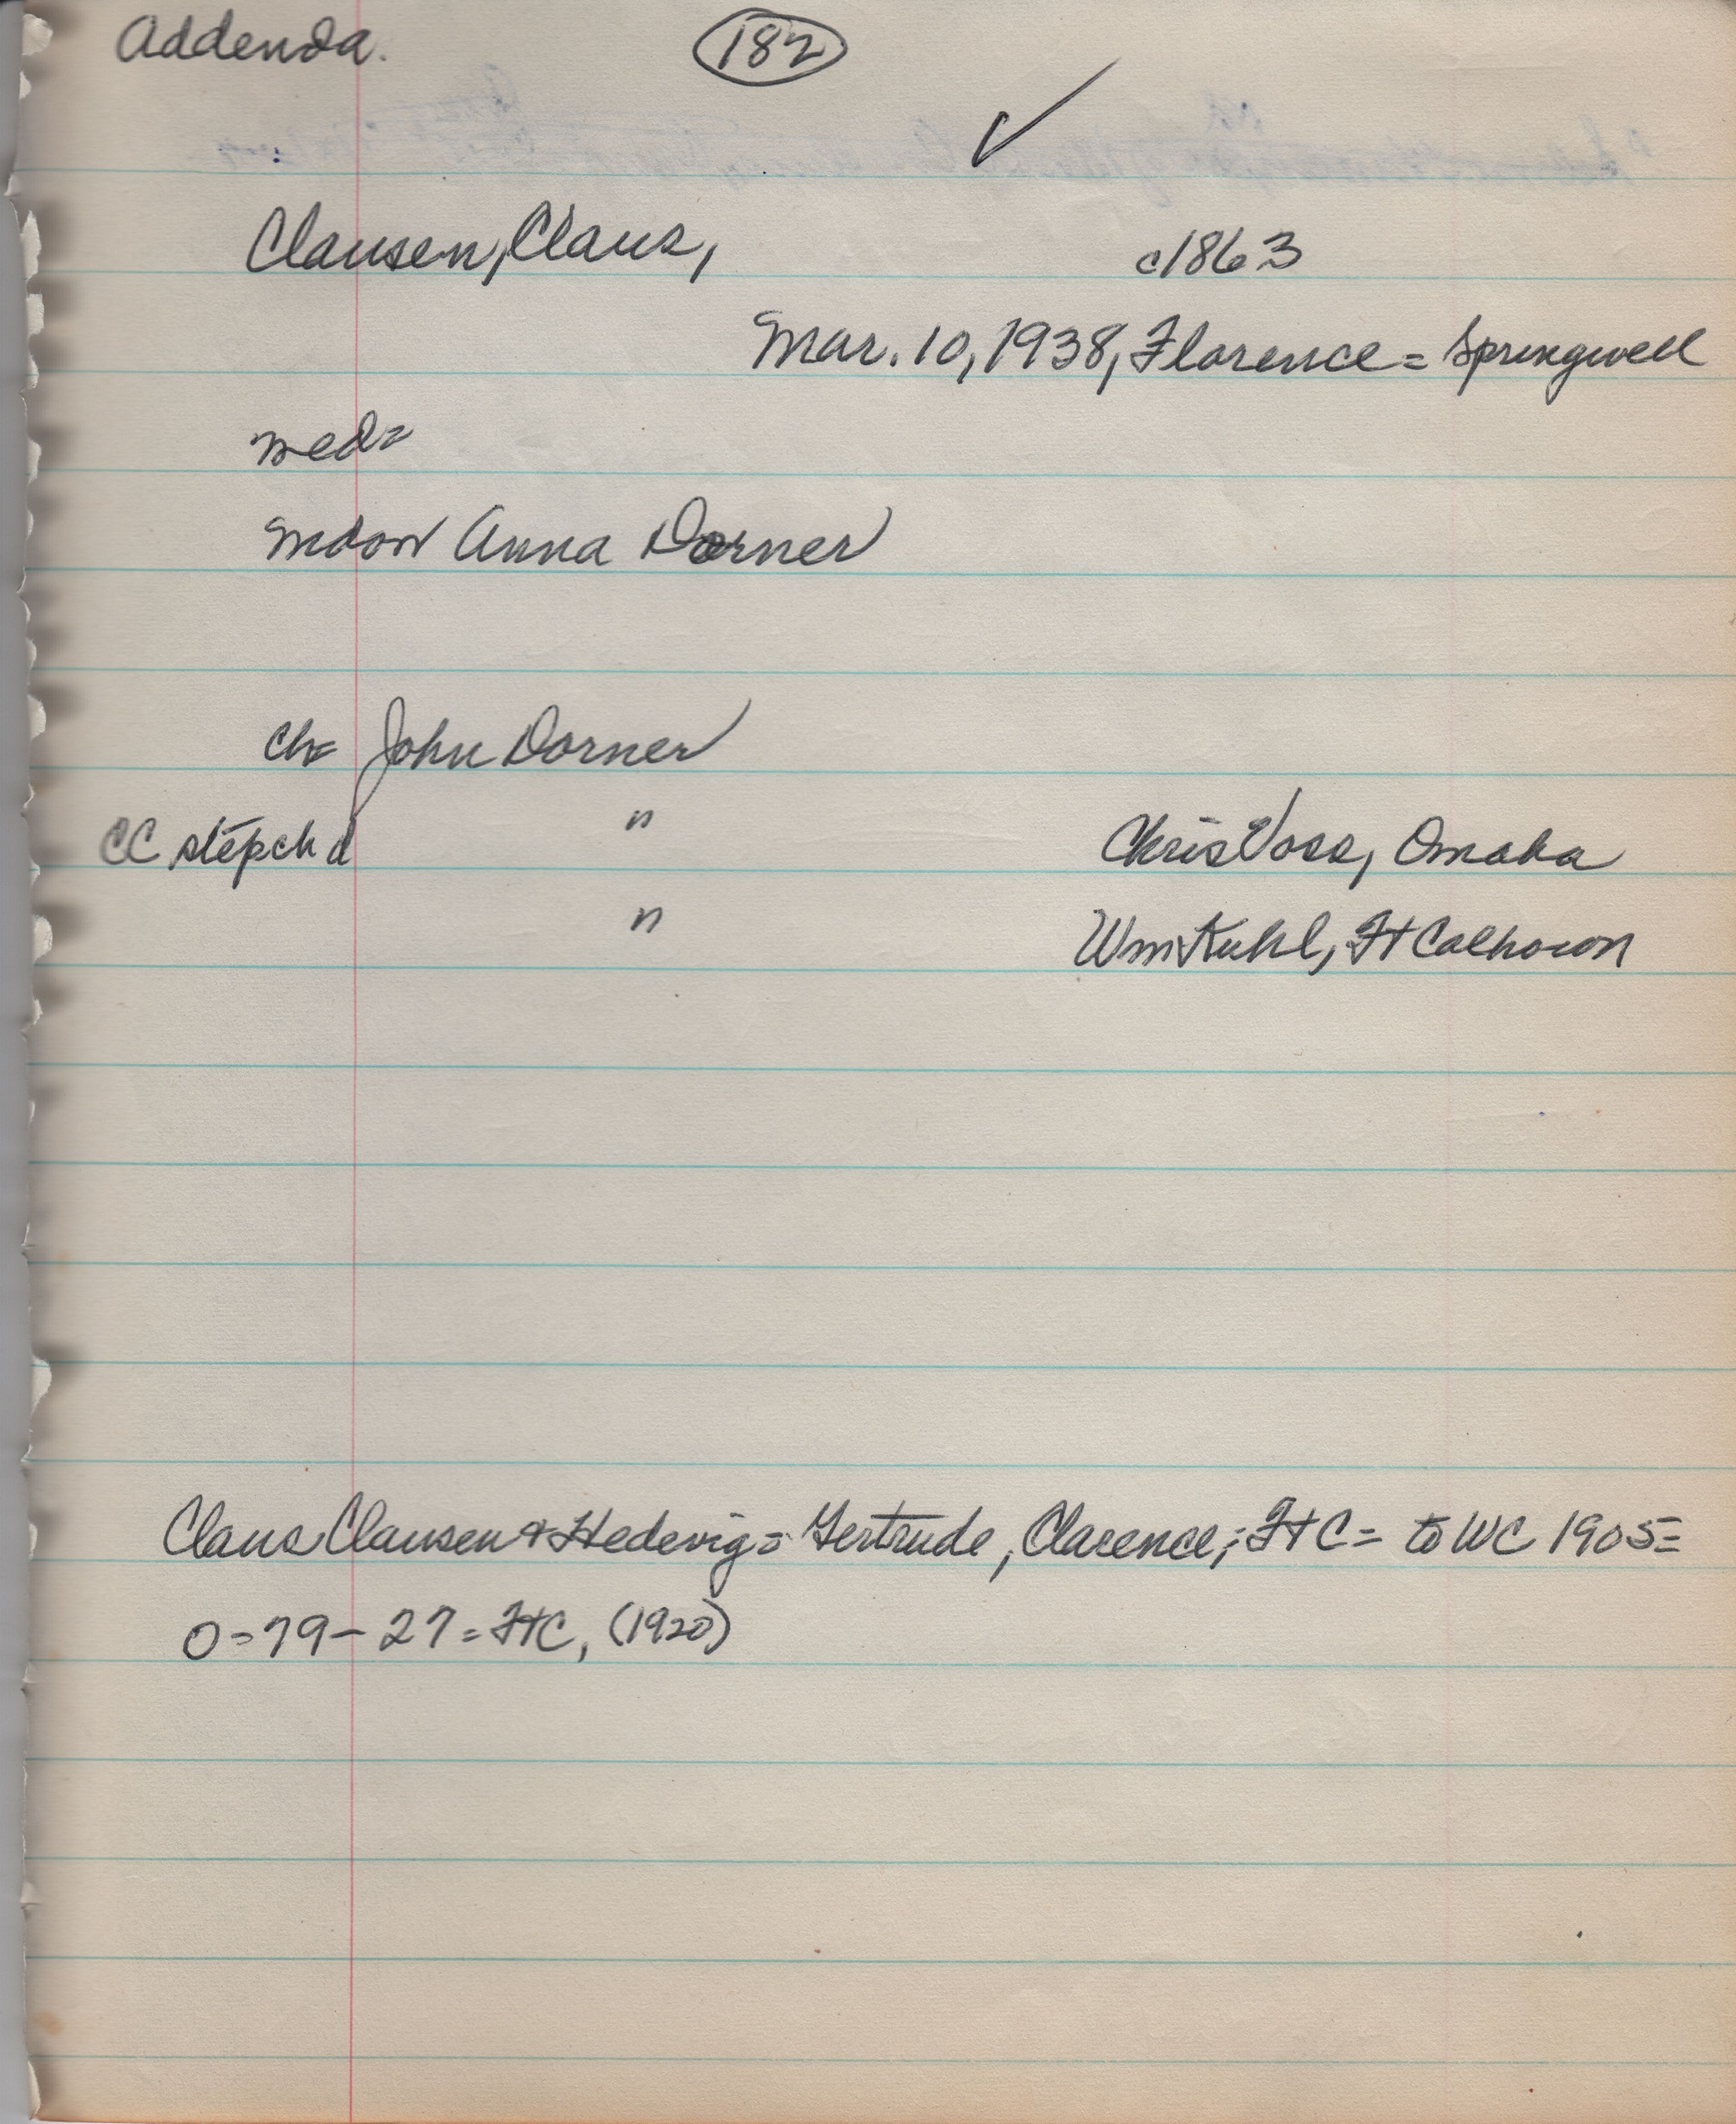 Addenda. 182
✓
Clausen, Claus, c1863
Mar. 10, 1938, Florence = Springwell
med=
mdow Anna Dorner
ch= John Dorner
CC stepchd " Chris Voss, Omaha
" Wm Kuhl, Ft Calhoun
Claus Clausen & Hedevig = Gertrude, Clarence; FtC = to WC 1905=
O=79-27 = FtC, (1920)